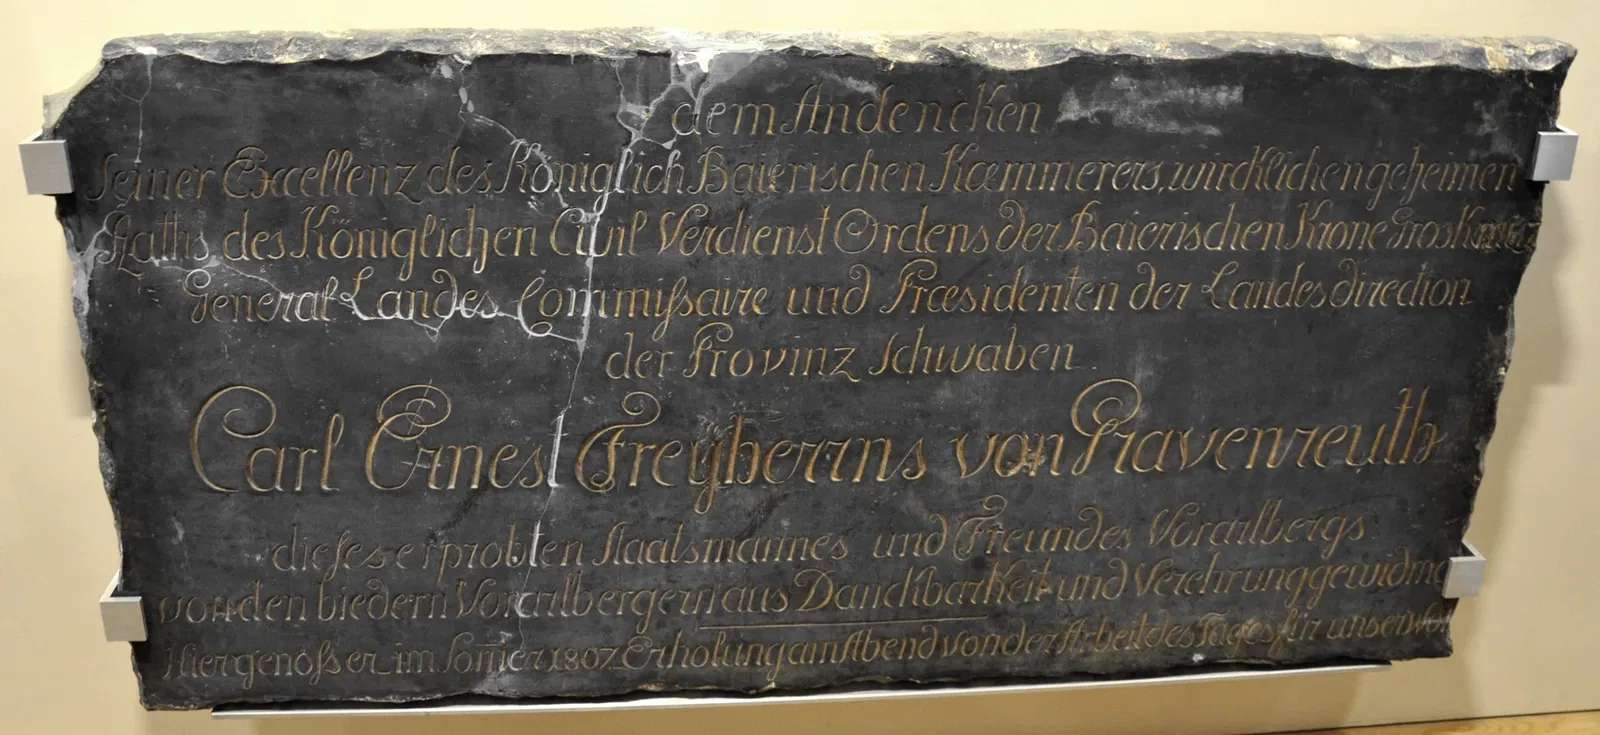 dem Andencken
Seiner Excellenz des Königlich Baierischen Kæmmerers, wircklichen geheimen
Raths des Königlichen Civil Verdienst Ordens der Baierischen Krone GrosKreuz
General Landes Commißaire und Præsidenten der Landesdirection
der Provinz Schwaben.
Carl Ernest Freyherrns von Gravenreuth
dieses erprobten Staatsmannes und Freundes Vorarlbergs
von den biedern Vorarlbergern aus Danckbarkeit und Verehrung gewidmet
Hier genoß er im Somer 1807 Erholung am Abend von der Arbeit des Tages für unser